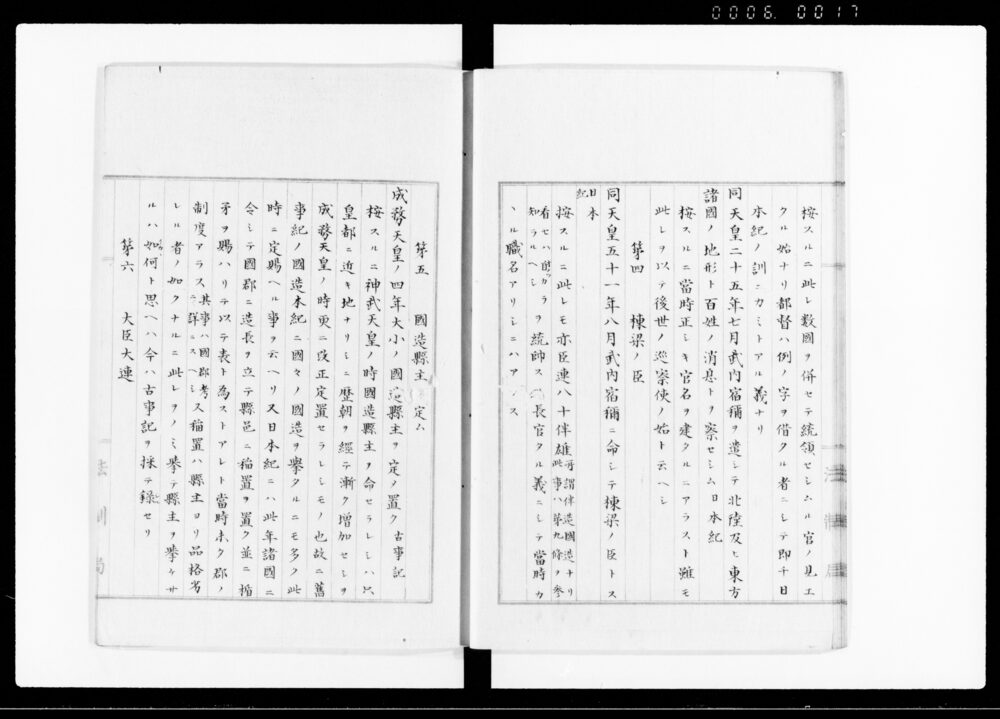 0006 0017
按スルニ此レ数國ヲ併セテ統領セシムル官ノ見エ
タル始ナリ都督ハ例ノ字ヲ借タル者ニシテ即チ日
本紀ノ訓ニカミトアル義ナリ
同天皇二十五年七月武内宿禰ヲ遣シテ北陸及ヒ東方
諸國ノ地形ト百姓ノ消息トヲ察セシム日本紀
按スルニ當時正シキ官名ヲ建タルニアラスト雖モ
此レヲ以テ後世ノ巡察使ノ始ト云ヘシ
第四 棟梁ノ臣
同天皇五十一年八月武内宿禰ニ命シテ棟梁ノ臣トス
日本紀
按スルニ此レモ亦臣連八十伴雄所謂伴造國造ナリ
此事ハ第九條ヲ参
看セハ自カラ
知ラルヘシ
ヲ統帥スル長官タル義ニシテ當時カ
ヽル職名アリシニハアラス
第五 國造縣主 定ム
成務天皇ノ四年大小ノ國造縣主ヲ定メ置ク古事記
按スルニ神武天皇ノ時國造縣主ヲ命セラレシハ只
皇都ニ近キ地ナリシニ歴朝ヲ經テ漸ク増加セシヲ
成務天皇ノ時更ニ改正定置セラレシモノ也故ニ舊
事紀ノ國造本紀ニ國々ノ國造ヲ擧タルニモ多ク此
時ニ定賜ヘル事ヲ云ヘリ又日本紀ニハ此年諸國ニ
令シテ國郡ニ造長ヲ立テ縣邑ニ稲置ヲ置ク並ニ楯
矛ヲ賜ハリテ以テ表ト為ストアレト當時未タ郡ノ
制度アラス其事ハ國郡考
ニ詳ニスヘシ
又稲置ハ縣主ヨリ品格劣
レル者ノ如クナルニ此レヲノミ擧テ縣主ヲ擧ケサ
ルハ如何ト思ヘハ今ハ古事記ヲ採テ録セリ
第六 大臣大連